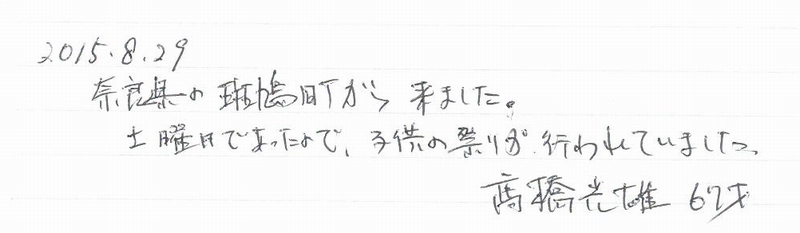 2015.8.29
奈良県の斑鳩町から来ました。
土曜日であったので、子供の祭りが行われていました。
髙橋光雄 67才